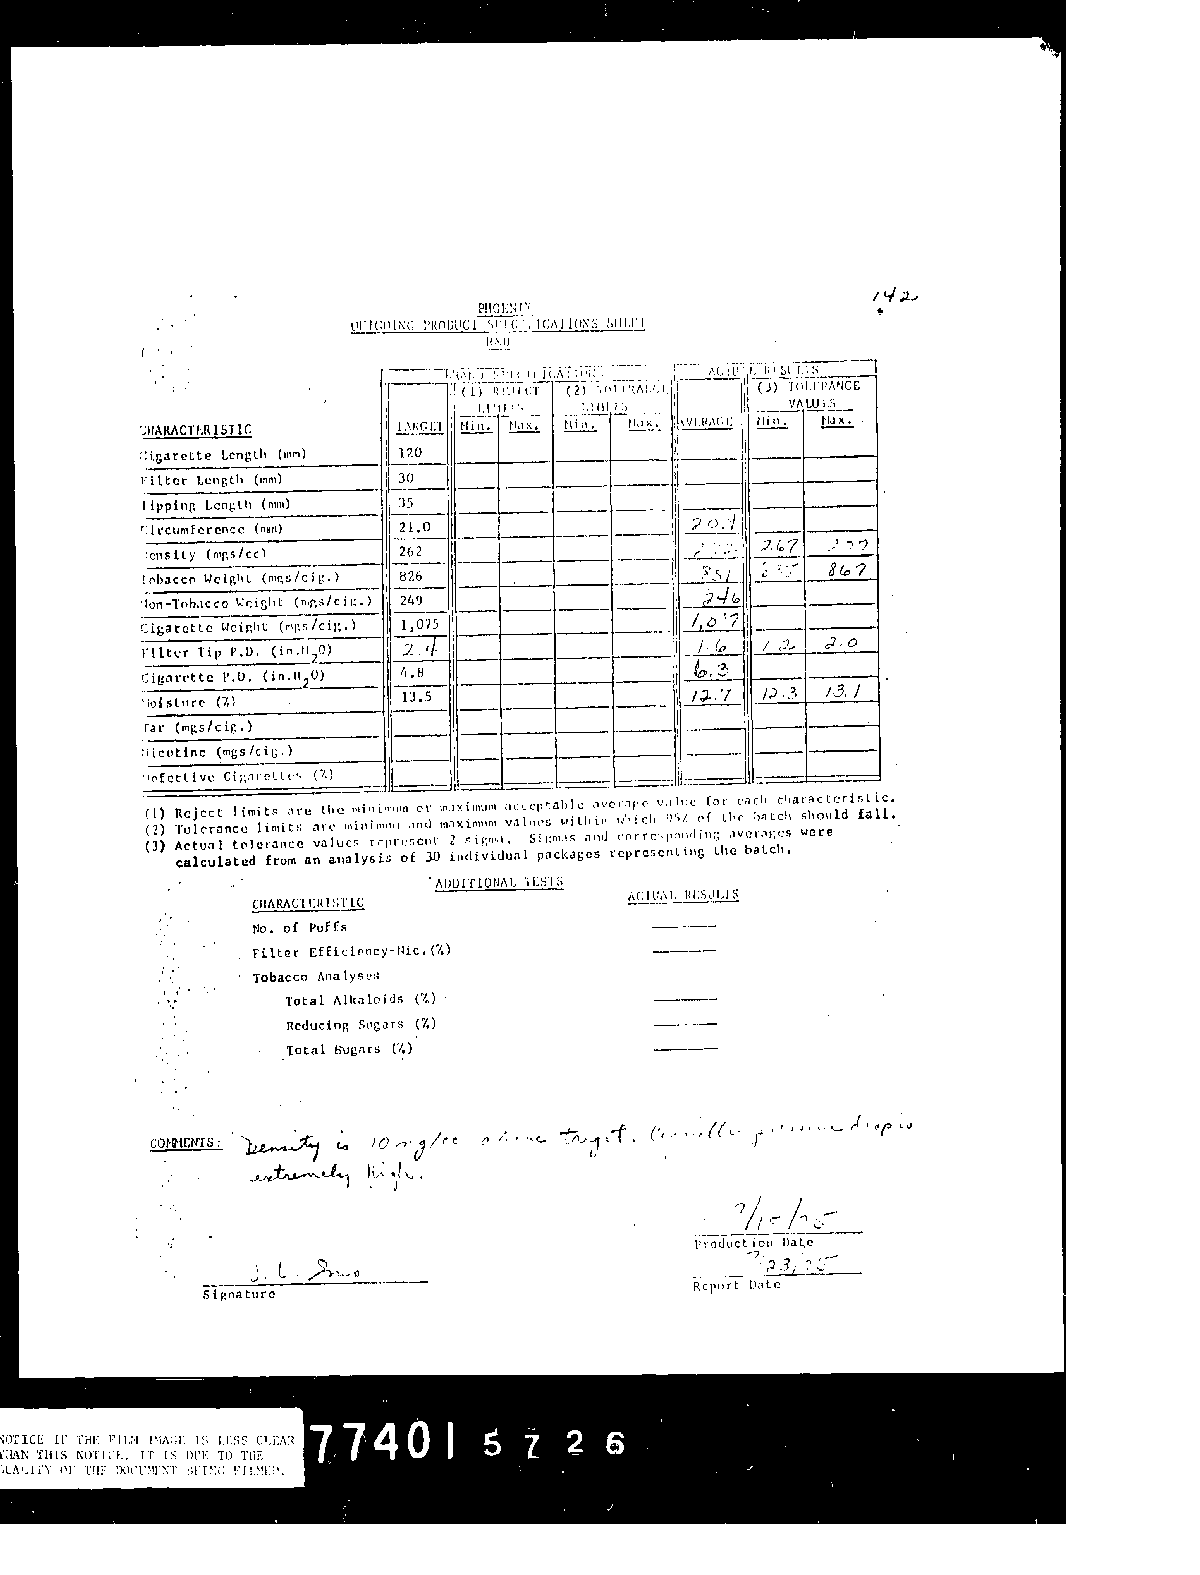 142
PHOENIX
OUTGOING PRODUCT SPECIFICATIONS SHEET
R&D
(1) REJECT LIMITS (2) TOLERANCE LIMITS ACTUAL RESULTS (3) TOLERANCE VALUES
CHARACTERISTIC TARGET Min. Max. Min. Max. AVERAGE Min. Max.
Cigarette Length (mm) 120
Filter Length (mm) 30
Tipping Length (mm) 35
Circumference (mm) 21.0
Density (mgs/cc) 262 267
Tobacco Weight (mgs/cig.) 826 867
Non-Tobacco Weight (mgs/cig.) 249 246
Cigarette Weight (mgs/cig.) 1,075
Filter Tip P.D. (in.H2O) 2.4 1.6 1.2 2.0
Cigarette P.D. (in.H2O) 4.8 6.3
Moisture (%) 13.5 12.7 12.3 13.1
Tar (mgs/cig.)
Nicotine (mgs/cig.)
Defective Cigarettes (%)
(1) Reject limits are the minimum or maximum acceptable average value for each characteristic.
(2) Tolerance limits are minimum and maximum values within which 95% of the batch should fall.
(3) Actual tolerance values represent 2 sigma. Sigmas and corresponding averages were
calculated from an analysis of 30 individual packages representing the batch.
ADDITIONAL TESTS
CHARACTERISTIC ACTUAL RESULTS
No. of Puffs
Filter Efficiency-Nic.(%)
Tobacco Analyses
Total Alkaloids (%)
Reducing Sugars (%)
Total Sugars (%)
COMMENTS: Density is 10 mg/cc above target. pressure drop is
extremely high.
Production Date
Signature
Report Date
NOTICE IF THE FILM IMAGE IS LESS CLEAR
THAN THIS NOTICE, IT IS DUE TO THE
QUALITY OF THE DOCUMENT BEING FILMED.
77401 5726